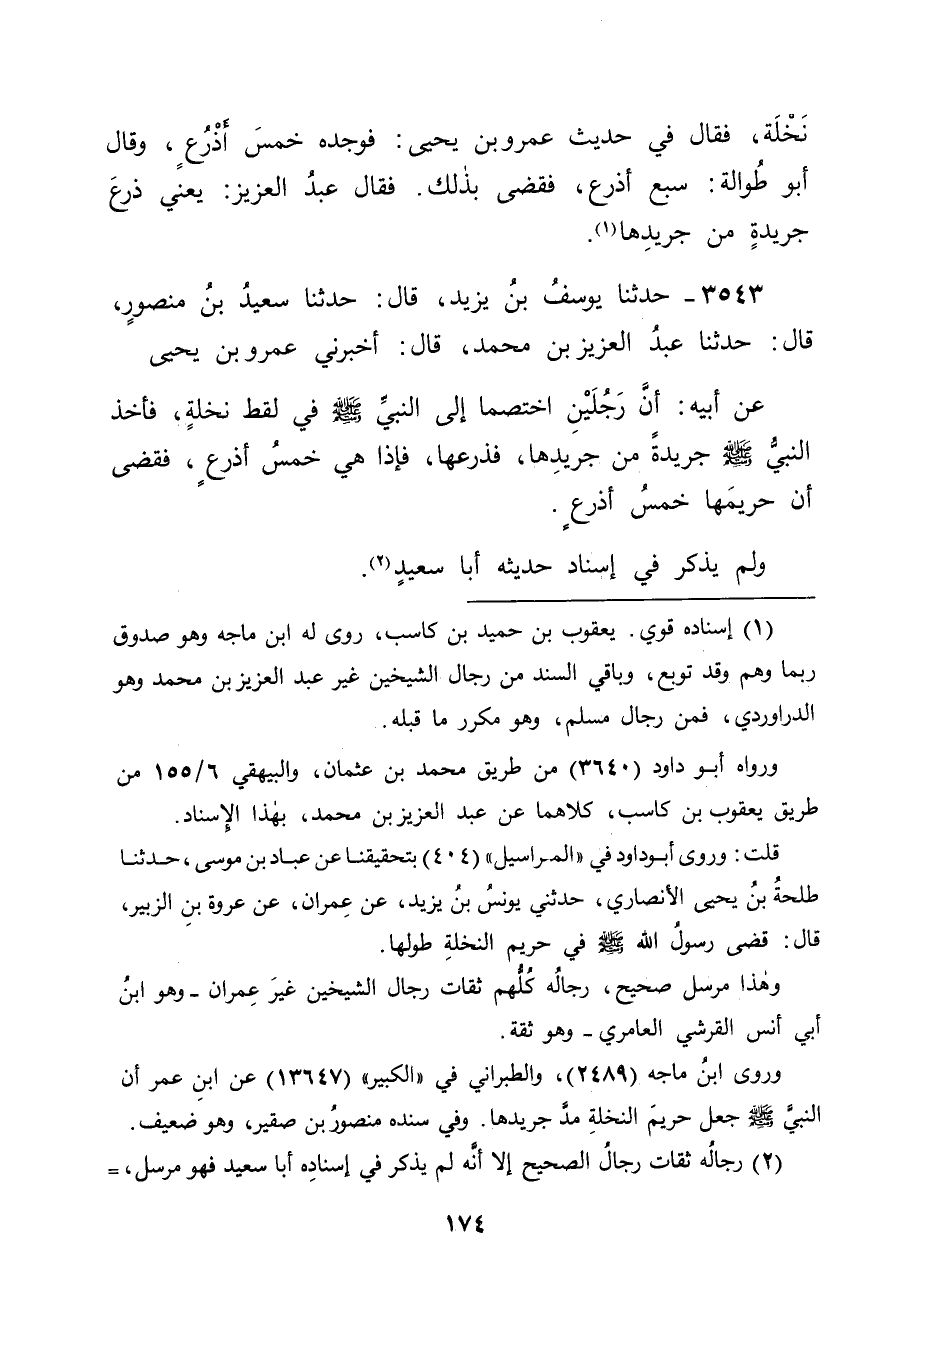 نَخْلَة، فقال في حديث عمرو بن يحيى: فوجده خمسَ أَذْرُعٍ، وقال
أبو طُوالة: سبع أذرع، فقضى بذٰلك. فقال عبدُ العزيز: يعني ذرعَ
جريدةٍ من جريدِها(١).
٣٥٤٣ ـ حدثنا يوسفُ بنُ يزيد، قال: حدثنا سعيدُ بنُ منصورٍ،
قال: حدثنا عبدُ العزيز بن محمد، قال: أخبرني عمرو بن يحيى
عن أبيه: أنَّ رَجُلَيْنِ اختصما إلى النبيِّ ﷺ في لقط نخلةٍ، فأخذ
النبيُّ ﷺ جريدةً من جريدِها، فذرعها، فإذا هي خمسُ أذرعٍ، فقضى
أن حريمَها خمسُ أذرعٍ.
ولم يذكر في إسناد حديثه أبا سعيدٍ(٢).
(١) إسناده قوي. يعقوب بن حميد بن كاسب، روى له ابن ماجه وهو صدوق
ربما وهم وقد توبع، وباقي السند من رجال الشيخين غير عبد العزيز بن محمد وهو
الدراوردي، فمن رجال مسلم، وهو مكرر ما قبله.
ورواه أبو داود (٣٦٤٠) من طريق محمد بن عثمان، والبيهقي ١٥٥/٦ من
طريق يعقوب بن كاسب، كلاهما عن عبد العزيز بن محمد، بهٰذا الإِسناد.
قلت: وروى أبو داود في «المراسيل» (٤٠٤) بتحقيقنا عن عباد بن موسى، حدثنا
طلحةُ بنُ يحيى الأنصاري، حدثني يونسُ بنُ يزيد، عن عِمران، عن عروة بنِ الزبير،
قال: قضى رسولُ الله ﷺ في حريم النخلةِ طولها.
وهٰذا مرسل صحيح، رجالُه كُلُّهم ثقات رجال الشيخين غيرَ عِمران ـ وهو ابنُ
أبي أنس القرشي العامري ـ وهو ثقة.
وروى ابنُ ماجه (٢٤٨٩)، والطبراني في «الكبير» (١٣٦٤٧) عن ابنِ عمر أن
النبيَّ ﷺ جعل حريمَ النخلةِ مدَّ جريدها. وفي سنده منصورُ بن صقير، وهو ضعيف.
(٢) رجالُه ثقات رجالُ الصحيح إلا أنَّه لم يذكر في إسنادِه أبا سعيد فهو مرسل، =
١٧٤